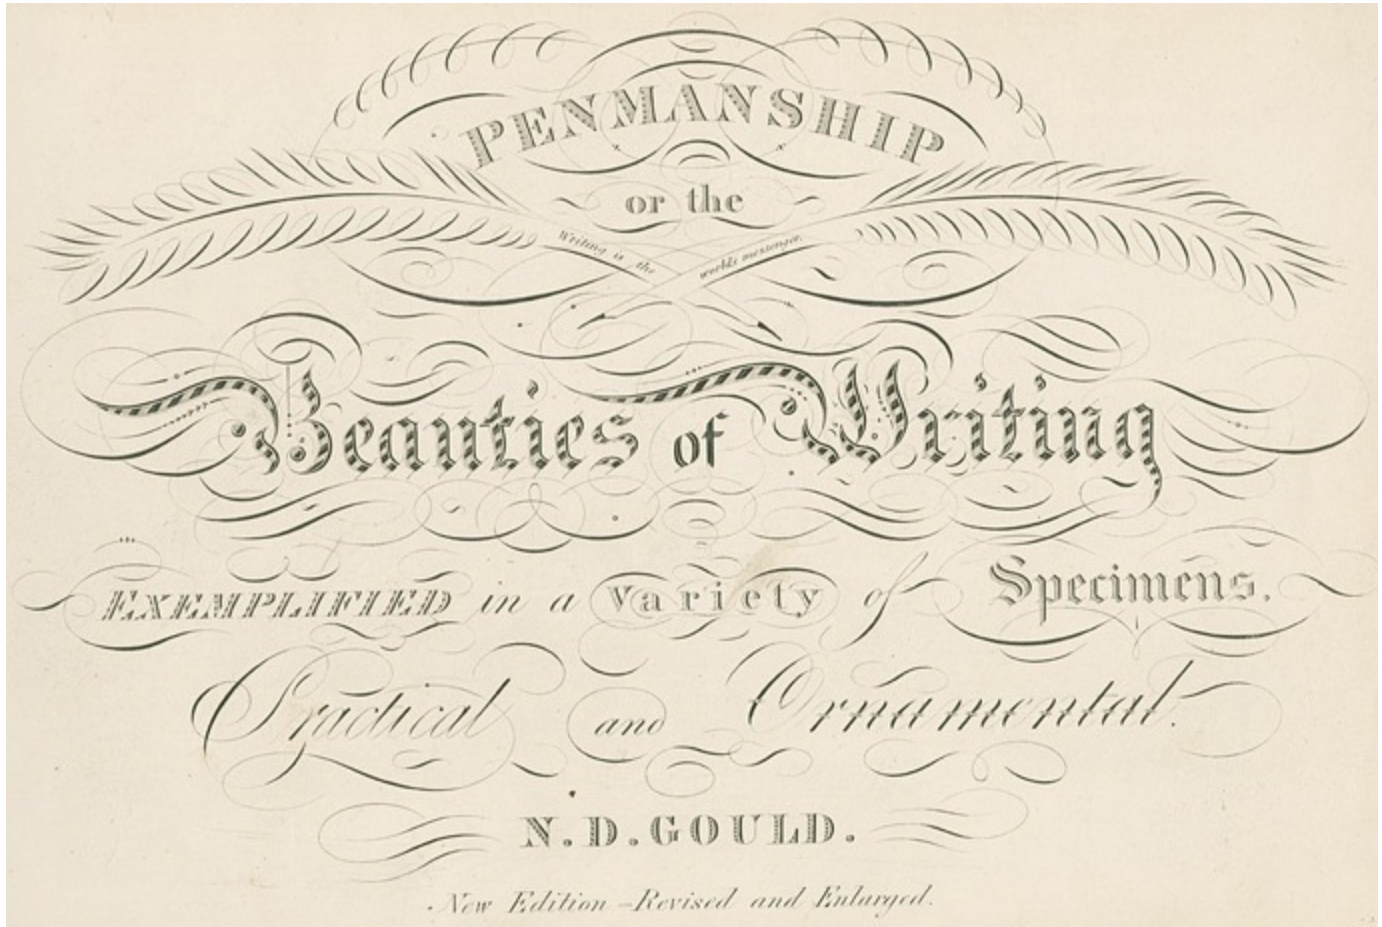 PENMANSHIP
or the
Writing is the worlds messenger.
Beauties of Writing
EXEMPLIFIED in a Variety of Specimens.
Practical and Ornamental.
N. D. GOULD.
New Edition – Revised and Enlarged.